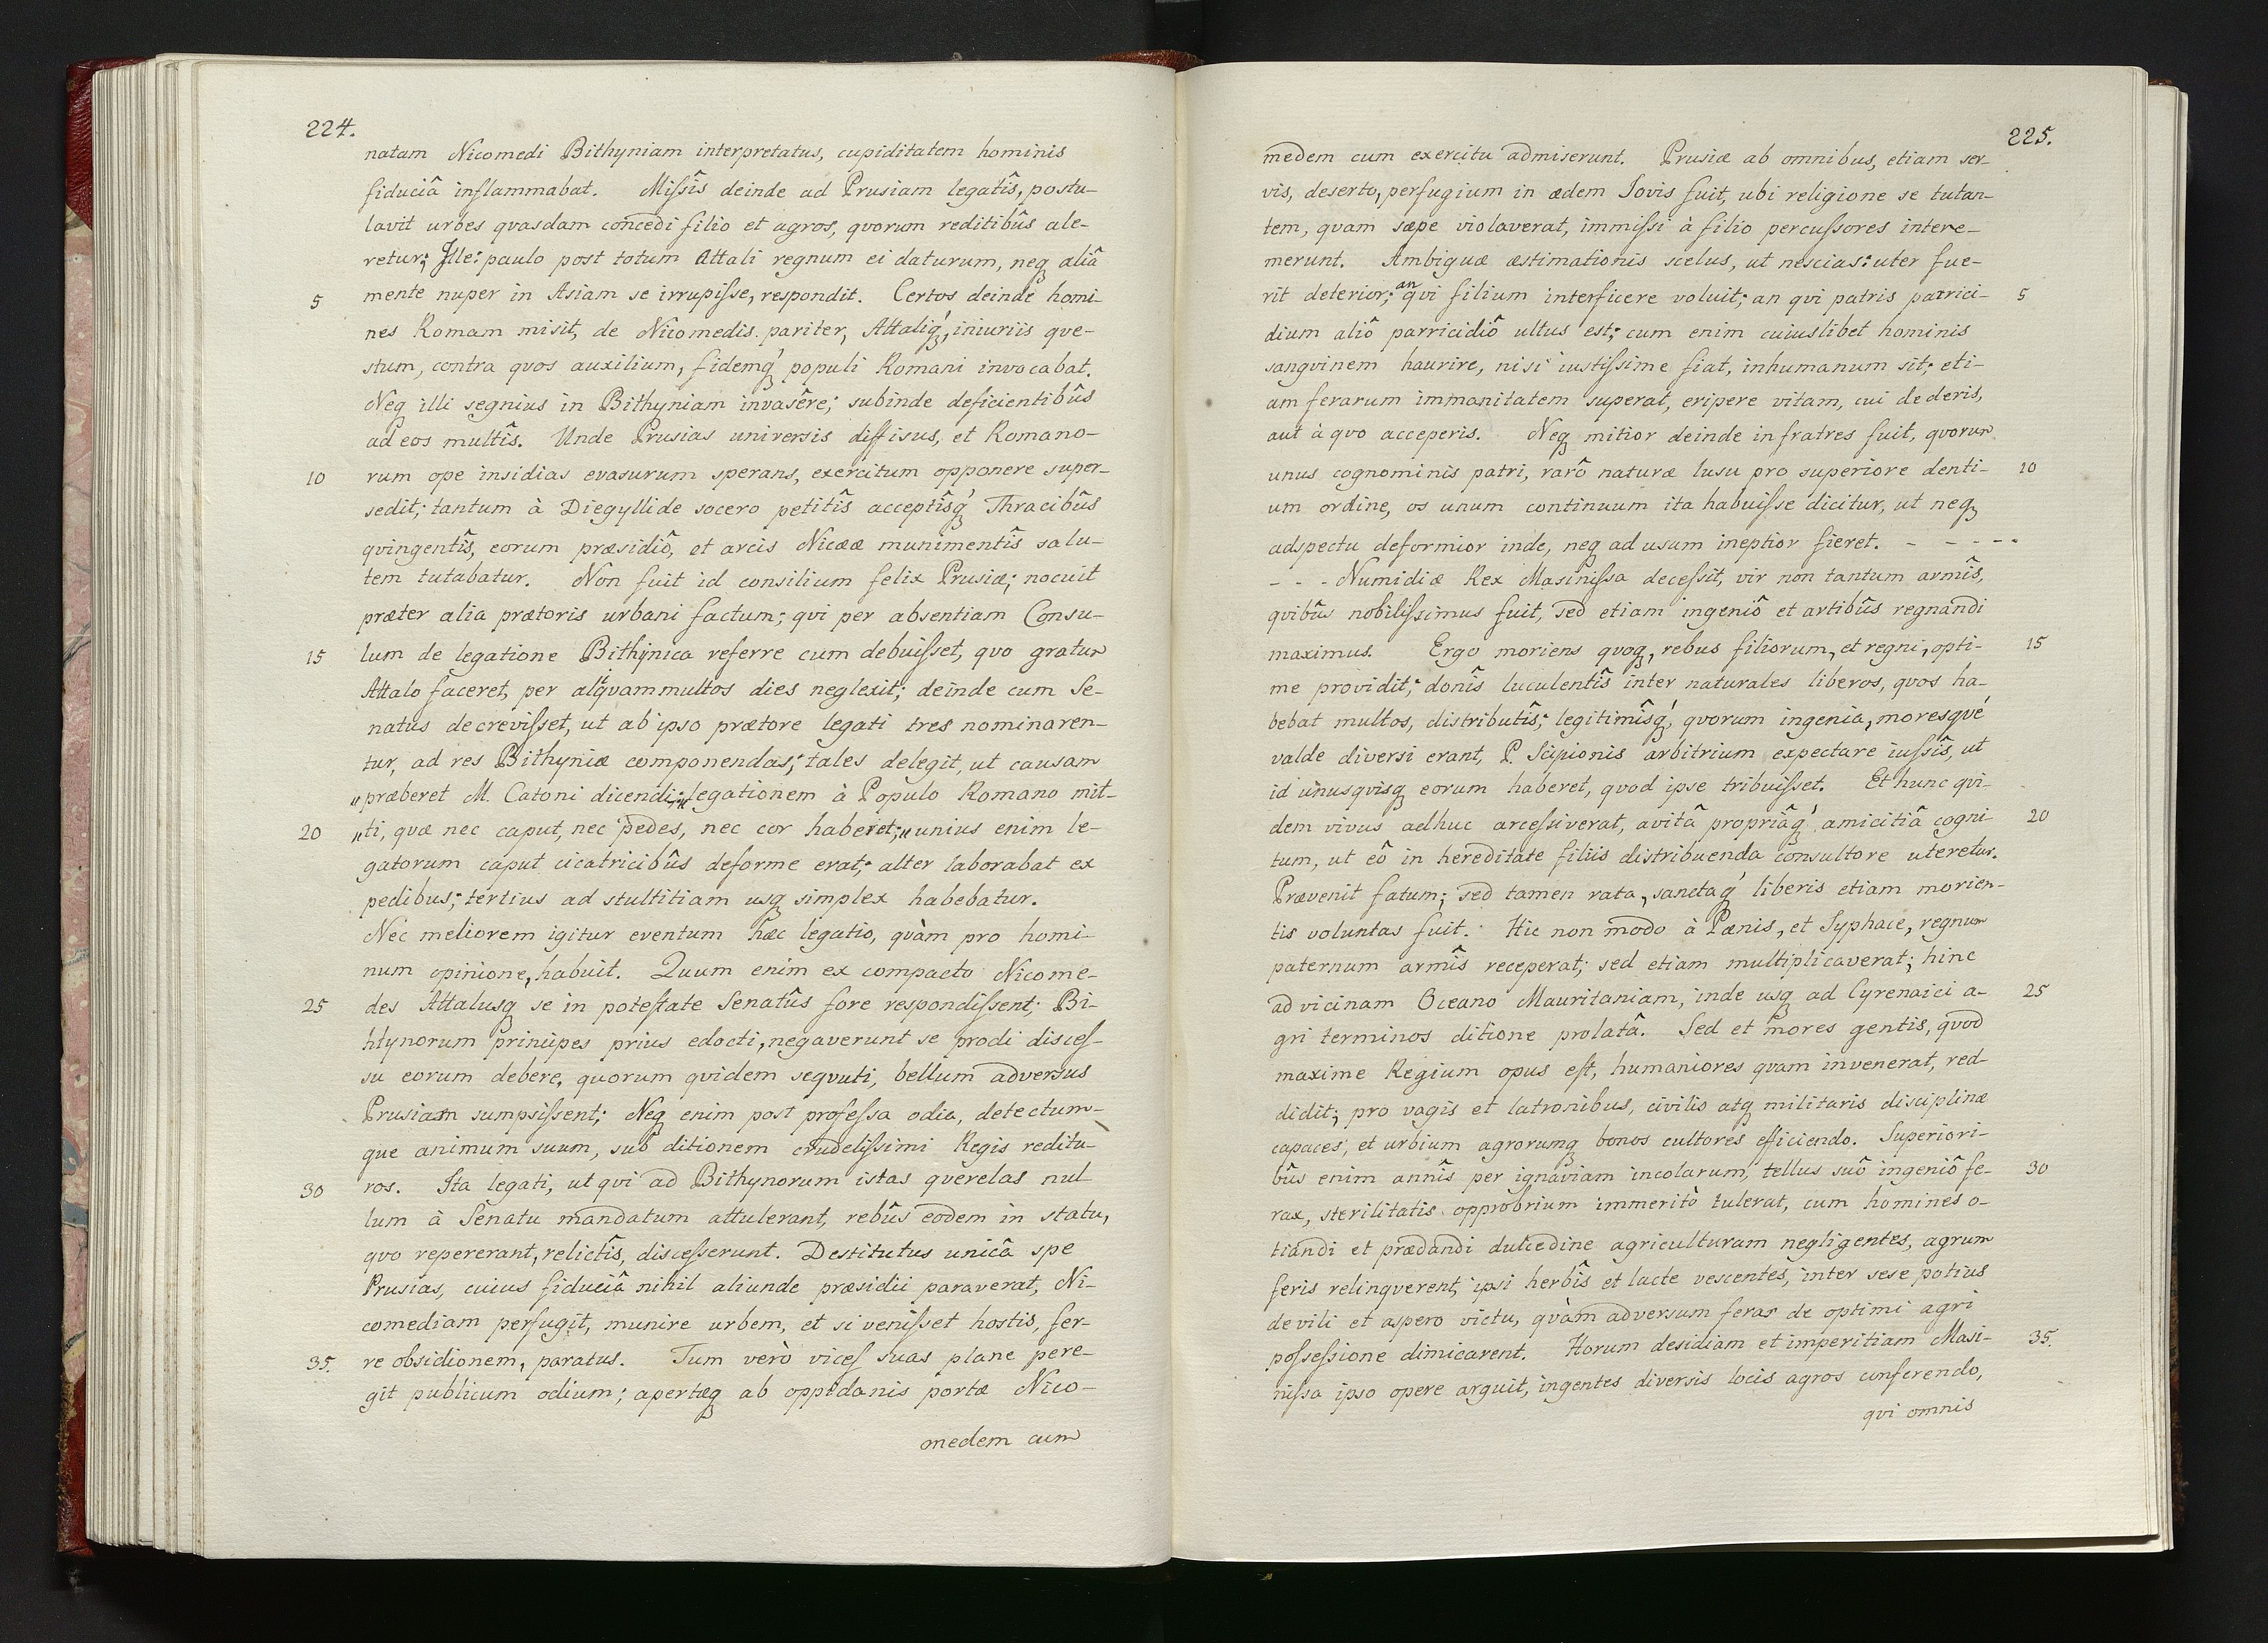 224.
natam Nicomedi Bithyniam interpretatus, cupiditatem hominis
fiduciâ inflammabat. Miſsîs deinde ad Prusiam legatîs, postu-
lavit urbes qvasdam concedi filio et agros, qvorum reditibûs ale-
retur; Ille: paulo post totum Attali regnum ei daturum, neq aliâ
5 mente nuper in Asiam se irrupiſse, respondit. Certos deinde homi-
nes Romam misit, de Nicomedis pariter, Attaliq́, iniuriis qve-
stum, contra qvos auxilium, fidemq́ populi Romani invocabat.
Neq illi segnius in Bithyniam invasêre; subinde deficientibûs
ad eos multîs. Unde Prusias universis diffisus, et Romano-
10 rum ope insidias evasurum sperans, exercitum opponere super-
sedit; tantum à Diegyllide socero petitîs acceptîsq́ Thracibûs
qvingentîs, eorum præsidiô, et arcis Nicææ munimentîs salu-
tem tutabatur. Non fuit id consilium felix Prusiæ; nocuit
præter alia prætoris urbani factum; qvi per absentiam Consu-
15 lum de legatione Bithynica referre cum debuiſset, qvo gratum
Attalo faceret, per aliqvammultos dies neglexit; deinde cum Se-
natus decreviſset, ut ab ipso prætore legati tres nominaren-
tur, ad res Bithyniæ componendas; tales delegit, ut causam
„præberet M. Catoni dicendi: „legationem à Populo Romano mit-
20 „ti, qvæ nec caput, nec pedes, nec cor haberet;„ unius enim le-
gatorum caput cicatricibûs deforme erat; alter laborabat ex
pedibus; tertius ad stultitiam usq simplex habebatur.
Nec meliorem igitur eventum hæc legatio, qvàm pro homi-
num opinione, habuit. Quum enim ex compacto Nicome-
25 des Attalusq se in poteſtate Senatûs fore respondiſsent; Bi-
htynorum principes prius edocti, negaverunt se prodi disceſ-
su eorum debere, quorum qvidem seqvuti, bellum adversus
Prusiam sumpsiſsent; Neq enim post profeſsa odia, detectum-
que animum suum, sub ditionem crudeliſsimi Regis reditu-
30 ros. Ita legati, ut qvi ad Bithynorum istas qverelas nul
lum à Senatu mandatum attulerant, rebûs eodem in statu,
qvo repererant, relictîs, disceſserunt. Destitutus unicâ spe
Prusias, cuius fiduciâ nihil aliunde præsidii paraverat, Ni-
comediam perfugit, munire urbem, et si veniſset hostis, fer-
35. re obsidionem, paratus. Tum verò viceſ suas plane pere-
git publicum odium; apertæq ab oppidanis portæ Nico-
medem cum
225.
medem cum exercitu admiserunt. Prusiæ ab omnibus, etiam ser-
vis, deserto, perfugium in ædem Iovis fuit, ubi religione se tutan-
tem, qvam sæpe violaverat, immiſsi à filio percuſsores intere-
merunt. Ambiguæ æstimationis scelus, ut nescias: uter fue-
rit deterior; an qvi filium interficere voluit; an qvi patris parrici- 5
dium aliô parricidiô ultus est; cum enim cuiuslibet hominis
sangvinem haurire, nisi iustiſsime fiat, inhumanum sit; eti-
am ferarum immanitatem superat, eripere vitam, cui dederis,
aut à qvo acceperis. Neq mitior deinde in fratres fuit, qvorum
unus cognominis patri, rarô naturæ lusu pro superiore denti- 10
um ordine, os unum continuum ita habuiſse dicitur, ut neq
adspectu deformior inde, neq ad usum ineptior fieret. - - - - -
- - - Numidiæ Rex Masiniſsa deceſsit, vir non tantum armîs,
qvibûs nobiliſsimus fuit, sed etiam ingeniô et artibûs regnandi
maximus. Ergo moriens qvoq, rebus filiorum, et regni, opti- 15
me providit; donîs luculentîs inter naturales liberos, qvos ha-
bebat multos, distributîs; legitimîsq́, qvorum ingenia, moresqvé
valde diversi erant, P. Scipionis arbitrium expectare iuſsîs, ut
id unusqvisq eorum haberet, qvod ipse tribuiſset. Et hunc qvi-
dem vivus adhuc arceſsiverat, avitâ propriâq́ amicitiâ cogni- 20
tum, ut eô in hereditate filiis distribuenda consultore uteretur.
Prævenit fatum; sed tamen rata, sanctaq́ liberis etiam morien-
tis voluntas fuit. Hic non modo à Pænis, et Syphace, regnum
paternum armîs receperat; sed etiam multiplicaverat; hinc
ad vicinam Oceano Mauritaniam, inde usq ad Cyrenaici a- 25
gri terminos ditione prolatâ. Sed et mores gentis, qvod
maxime Regium opus eſt, humaniores qvam invenerat, red-
didit; pro vagis et latronibus, civilis atq militaris disciplinæ
capaces, et urbium agrorumq bonos cultores efficiendo. Superiori-
bûs enim annîs per ignaviam incolarum, tellus suô ingeniô fe- 30
rax, sterilitatis opprobrium immeritò tulerat, cum homines o-
tiandi et prædandi dulcedine agriculturam negligentes, agrum
feris relinqverent, ipsi herbîs et lacte vescentes, inter sese potius
de vili et aspero victu, qvàm adversum feras de optimi agri
poſseſsione dimicarent. Horum desidiam et imperitiam Masi- 35.
niſsa ipso opere arguit, ingentes diversis locis agros conferendo,
qvi omnis